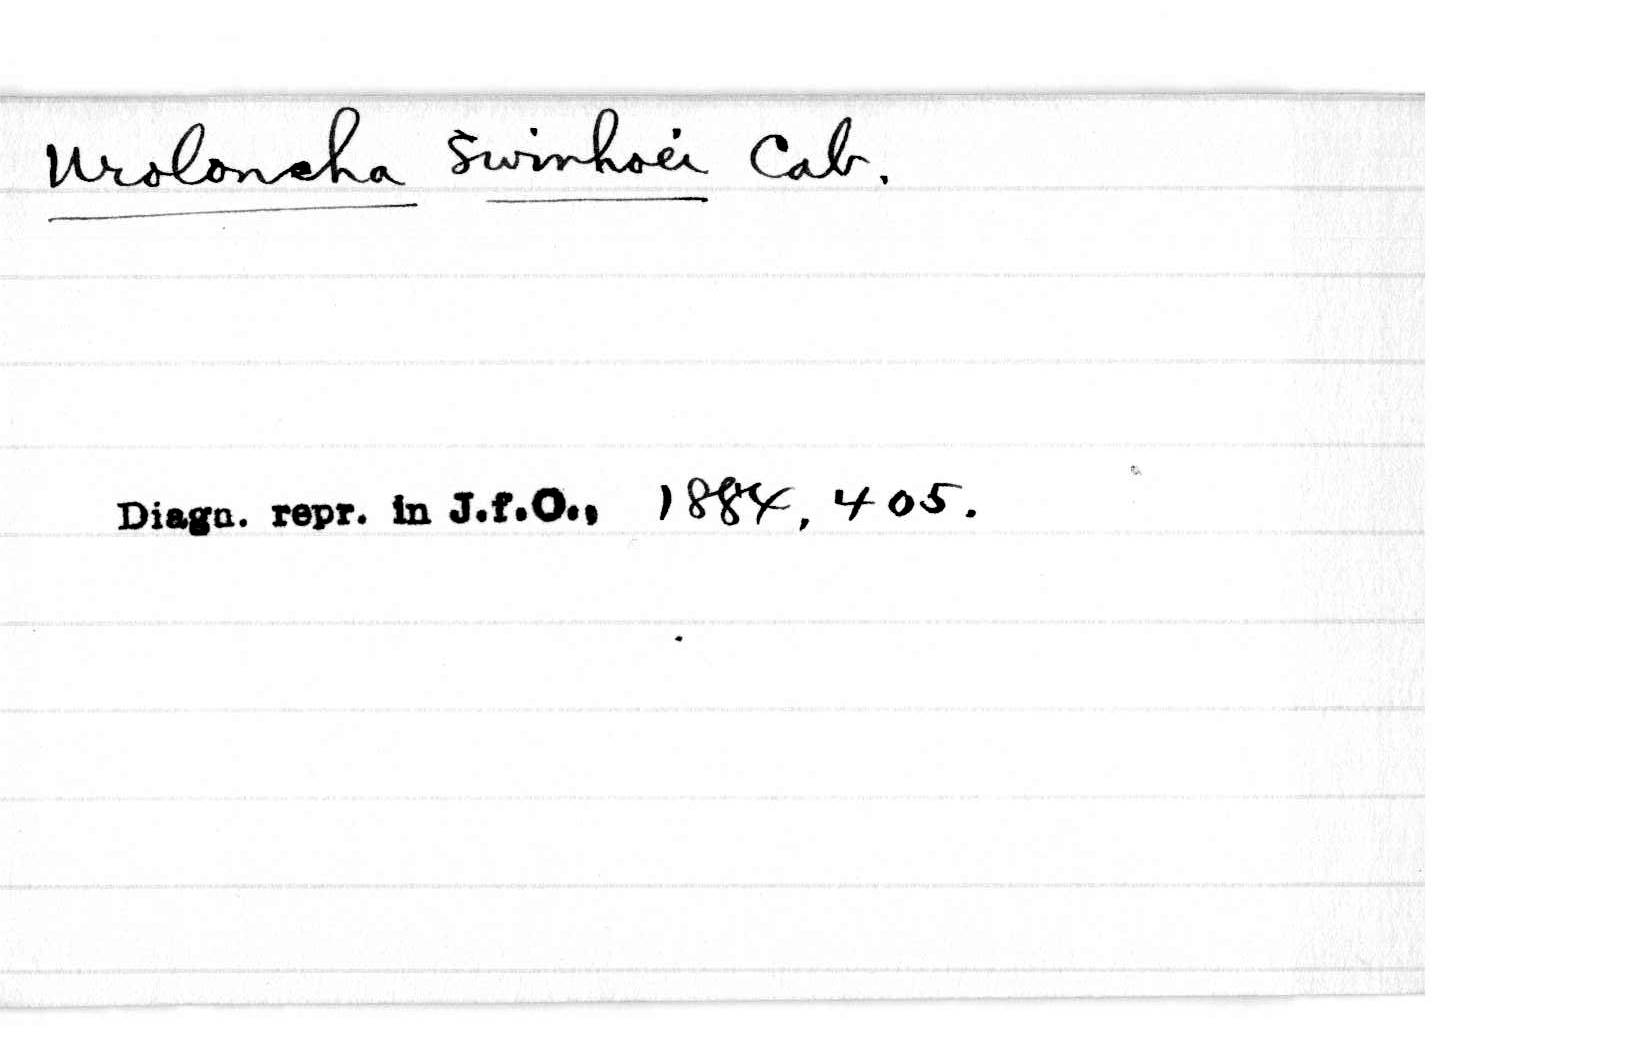 Uroloncha swinhoei Cab.
Diagn. repr. in J.f.O., 1884, 405.